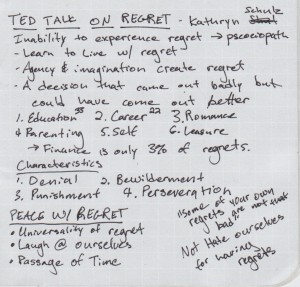 TED TALK ON REGRET - Kathryn Schulz
Inability to experience regret → pscociopath
- Learn to Live w/ regret
- Agency & imagination create regret
- A decision that came out badly but
could have come out better
1. Education 33 2. Career 22 3. Romance
4 Parenting 5. Self 6. Leasure
→ Finance is only 3% of regrets.
Characteristics
1. Denial 2. Bewilderment
3. Punishment 4. Perseveration
PEACE W/ REGRET
• Universality of regret
• Laugh @ ourselves
• Passage of Time
"some of your own
regrets are not that
bad"
Not Hate ourselves
for having
regrets